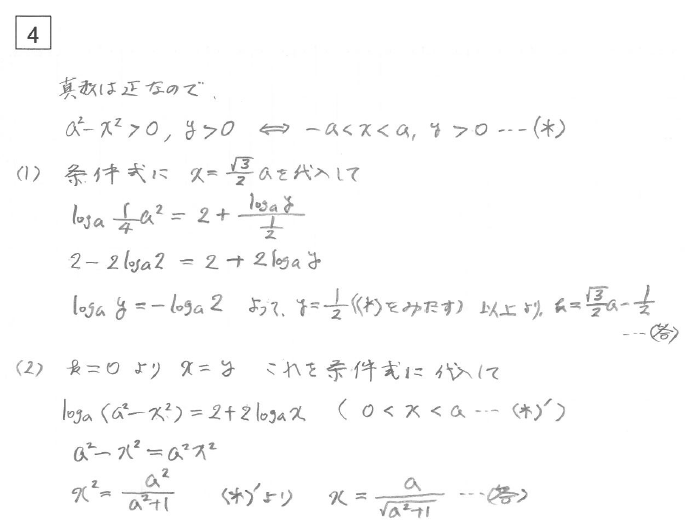 4
真数は正なので、
a²-x²>0, y>0 ⇔ -a<x<a, y>0 ---(*)
(1) 条件式に x=√3/2 aを代入して
logₐ 1/4 a² = 2 + logₐy / (1/2)
2-2logₐ2 = 2+2logₐy
logₐy=-logₐ2 よって、y=1/2 ((*)をみたす) 以上より、k=√3/2 a-1/2
---(答)
(2) k=0 より x=y これを条件式に代入して
logₐ(a²-x²)=2+2logₐx (0<x<a---(*)′)
a²-x²=a²x²
x²= a²/(a²+1) (*)′より x= a/√(a²+1) ---(答)